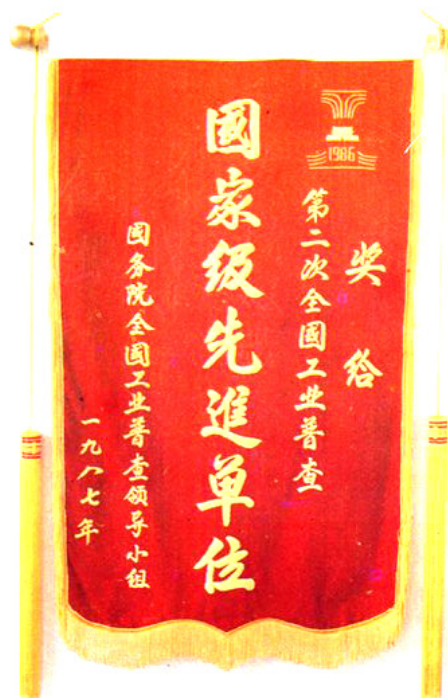 1986
奖给
第二次全國工业普查
國家级先進单位
国务院全國工业普查领导小组
一九八七年